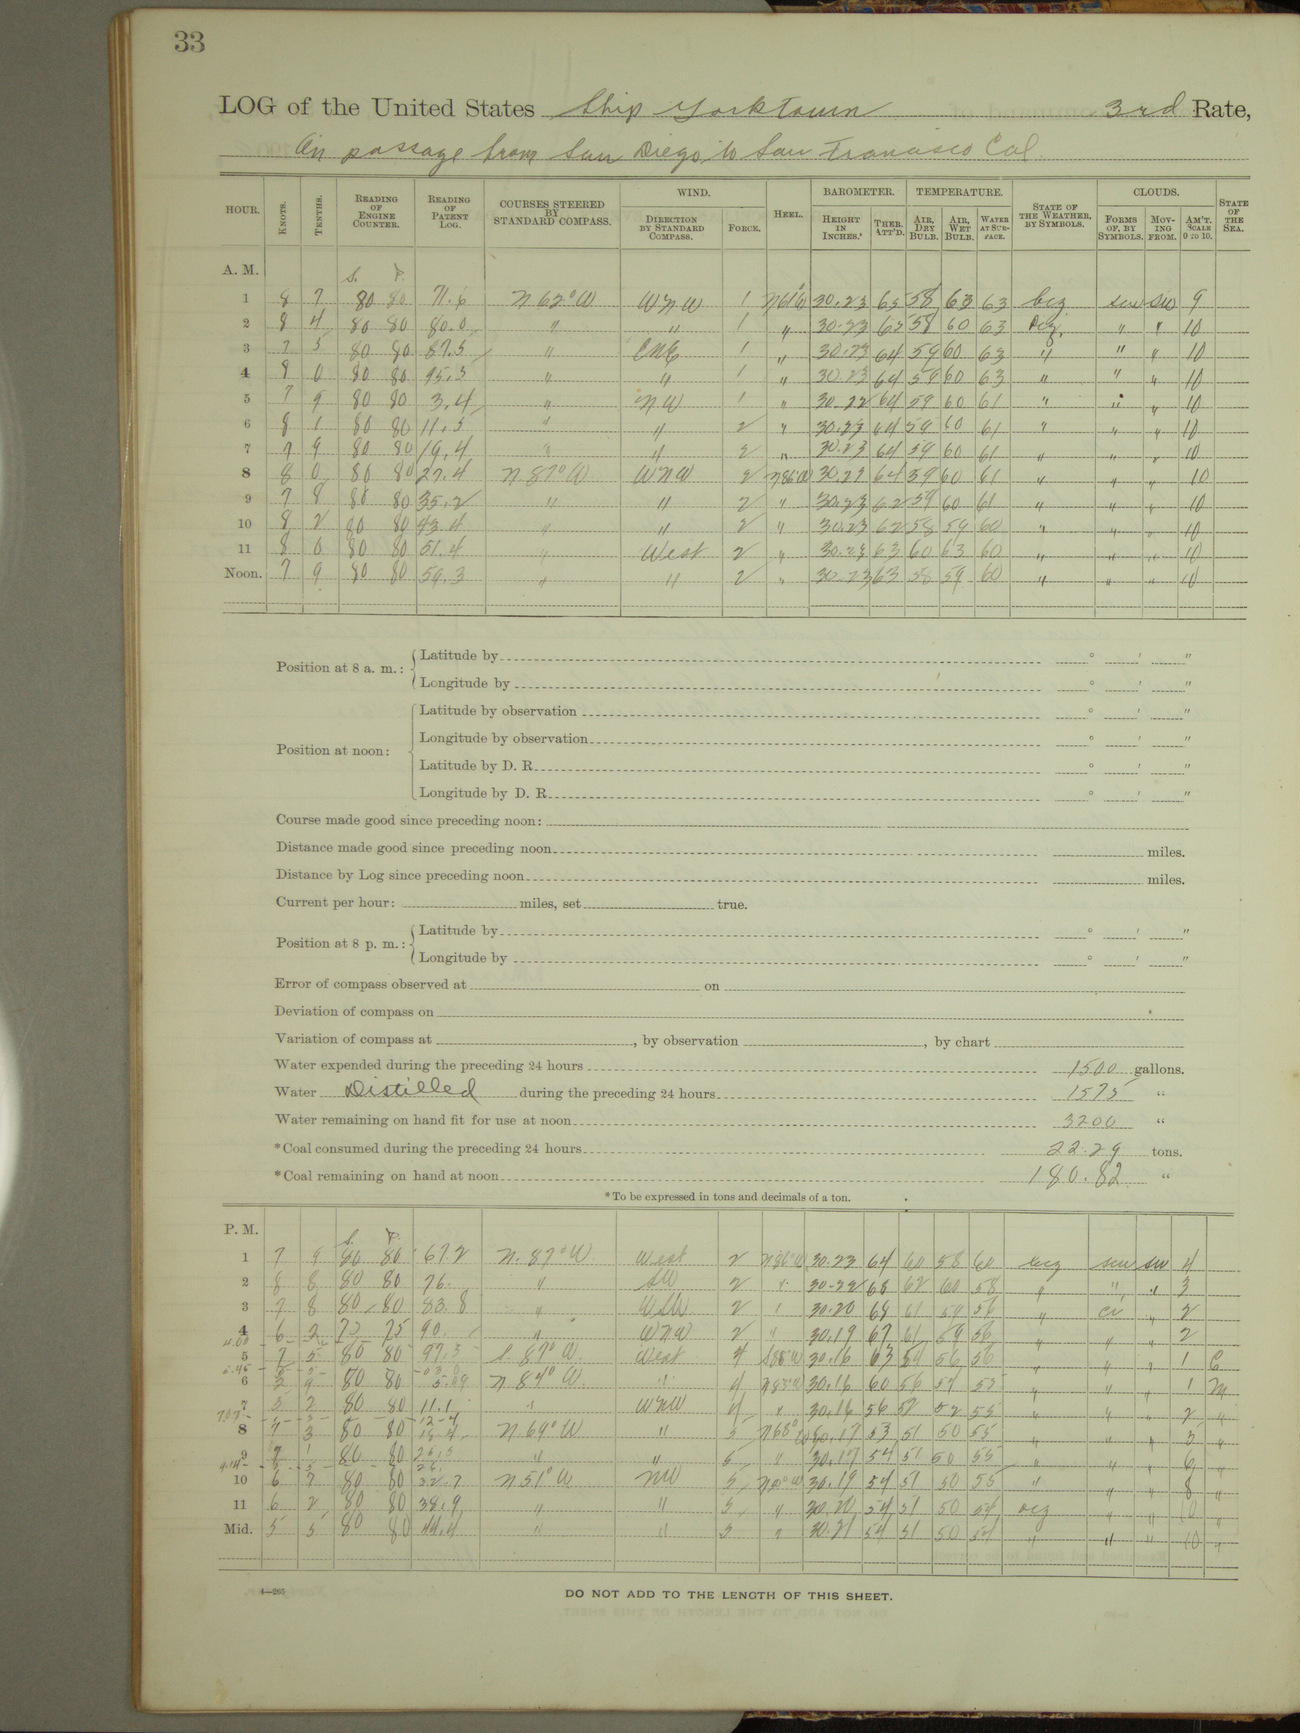 33
LOG of the United States Ship Yorktown 3rd Rate,
On passage from San Diego to San Francisco Cal.
HOUR. KNOTS. TENTHS. READING OF ENGINE COUNTER. READING OF PATENT LOG. COURSES STEERED BY STANDARD COMPASS. WIND. DIRECTION BY STANDARD COMPASS. FORCE. HEEL. BAROMETER. HEIGHT IN INCHES. THER. ATT'D. TEMPERATURE. AIR, DRY BULB. AIR, WET BULB. WATER AT SURFACE. STATE OF THE WEATHER, BY SYMBOLS. CLOUDS. FORMS OF, BY SYMBOLS. MOVING FROM. AM'T. SCALE 0 TO 10. STATE OF THE SEA.
A. M. S. P.
1 8 7 80 80 71.6 N 62° W WNW 1 30.23 63 58 63 63 bcg scu SW 9
2 8 4 80 80 80.0 " " 1 " 30.23 63 58 60 63 ocg " " 10
3 7 5 80 80 87.5 " ENE 1 " 30.23 64 59 60 63 " " " 10
4 8 0 80 80 95.3 " " 1 " 30.23 64 59 60 63 " " " 10
5 7 9 80 80 3.4 " NW 1 " 30.22 64 59 60 61 " " " 10
6 8 1 80 80 11.5 " " 2 " 30.23 64 59 60 61 " " " 10
7 7 9 80 80 19.4 " " 2 " 30.23 64 59 60 61 " " " 10
8 8 0 80 80 27.4 N 87° W WNW 2 N86W 30.21 64 59 60 61 " " " 10
9 7 8 80 80 35.2 " " 2 " 30.23 62 59 60 61 " " " 10
10 8 2 80 80 43.4 " " 2 " 30.23 62 58 59 60 " " " 10
11 8 0 80 80 51.4 " West 2 " 30.23 63 60 63 60 " " " 10
Noon. 7 9 80 80 59.3 " " 2 " 30.23 63 58 59 60 " " " 10
Position at 8 a. m.: Latitude by ° ' "
Longitude by ° ' "
Position at noon: Latitude by observation ° ' "
Longitude by observation ° ' "
Latitude by D. R. ° ' "
Longitude by D. R. ° ' "
Course made good since preceding noon:
Distance made good since preceding noon miles.
Distance by Log since preceding noon miles.
Current per hour: miles, set true.
Position at 8 p. m.: Latitude by ° ' "
Longitude by ° ' "
Error of compass observed at on
Deviation of compass on
Variation of compass at , by observation , by chart
Water expended during the preceding 24 hours 1500 gallons.
Water Distilled during the preceding 24 hours 1575 "
Water remaining on hand fit for use at noon 3200 "
*Coal consumed during the preceding 24 hours 22.29 tons.
*Coal remaining on hand at noon 180.82 "
*To be expressed in tons and decimals of a ton.
P. M. S. P.
1 7 9 80 80 67.2 N. 87° W West 2 N86°W 30.23 64 60 58 60 bcg scu SW 4
2 8 8 80 80 76. " SW 2 " 30.22 68 62 60 58 " " " 3
3 7 8 80 80 83.8 " WSW 2 " 30.20 68 61 59 56 " ci " 2
4 6 2 75 75 90. " WNW 2 " 30.19 67 61 59 56 " " " 2
4.00
5 7 5 80 80 97.5 S 87° W West 4 S88°W 30.16 63 54 56 56 " " " 1 C
5.45
6 80 80 5.09 N 84° W " 4 N83°W 30.16 60 56 54 55 " " " 1 M
7 5 2 80 80 11.1 " WNW 4 " 30.16 56 52 52 55 " " " 2 "
12.4
8 7 3 80 80 18.4 N 69° W " 5 N68°W 30.17 53 51 50 55 " " " 3 "
9 7 1 80 80 25.5 " " 5 " 30.17 54 51 50 55 " " " 6 "
9.14
10 6 7 80 80 32.7 N 51° W NW 5 30.19 54 51 50 55 " " " 8 "
11 6 2 80 80 38.9 " " 5 " 30.20 54 51 50 54 ocg " " 10 "
Mid. 5 5 80 80 44.4 " " 5 " 30.21 54 51 50 54 " " " 10 "
4—265
DO NOT ADD TO THE LENGTH OF THIS SHEET.